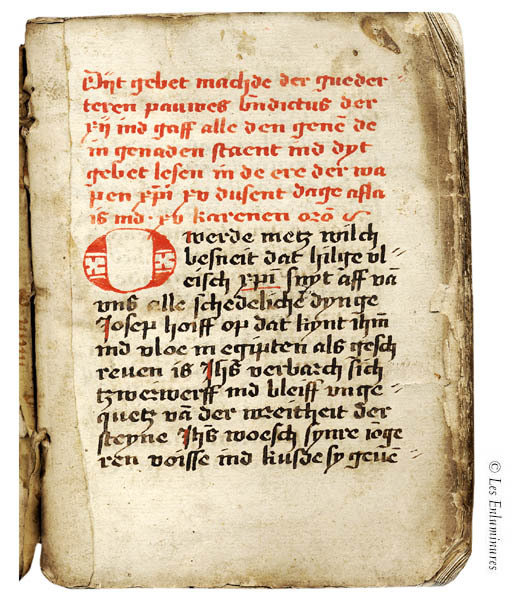 Dyt gebet machde der gueder
teren pauwes bñdictus der
xij ind gaff alle den genē de
in genaden staent ind dyt
gebet lesen in de ere der wa
pen xp̄i xv dusent dage afla
is ind xv karenen orō
O werde metz wilch
besneit dat hilge vl
eisch xp̄i snyt aff vā
vns alle schedeliche dynge
Josep hoiff op dat kynt ihm̄
ind vloe in egipten als gesch
reuen is Jhs̄ verbarch sich
tzwerwerff ind bleiff vnge
quetz vā der wreitheit der
steyne Jhs̄ woesch synre iōge
ren voisse ind kusde sy geuē
© Les Enluminures